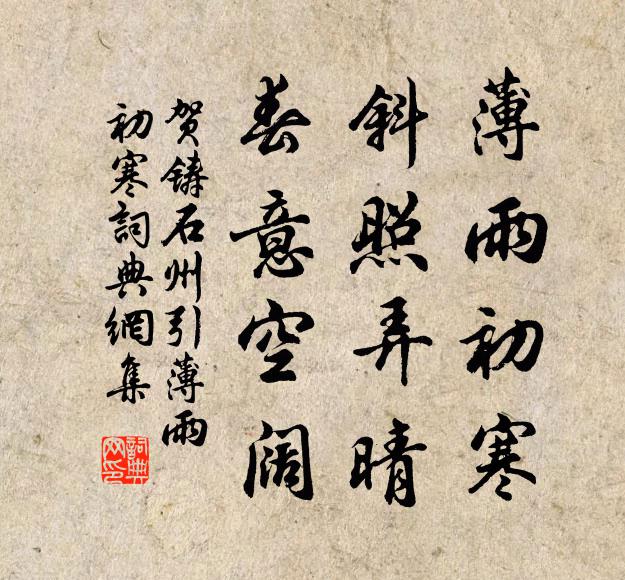 薄雨初寒
斜照弄晴
春意空阔
贺铸石州引薄雨
初寒詞典網集
詞典
网印